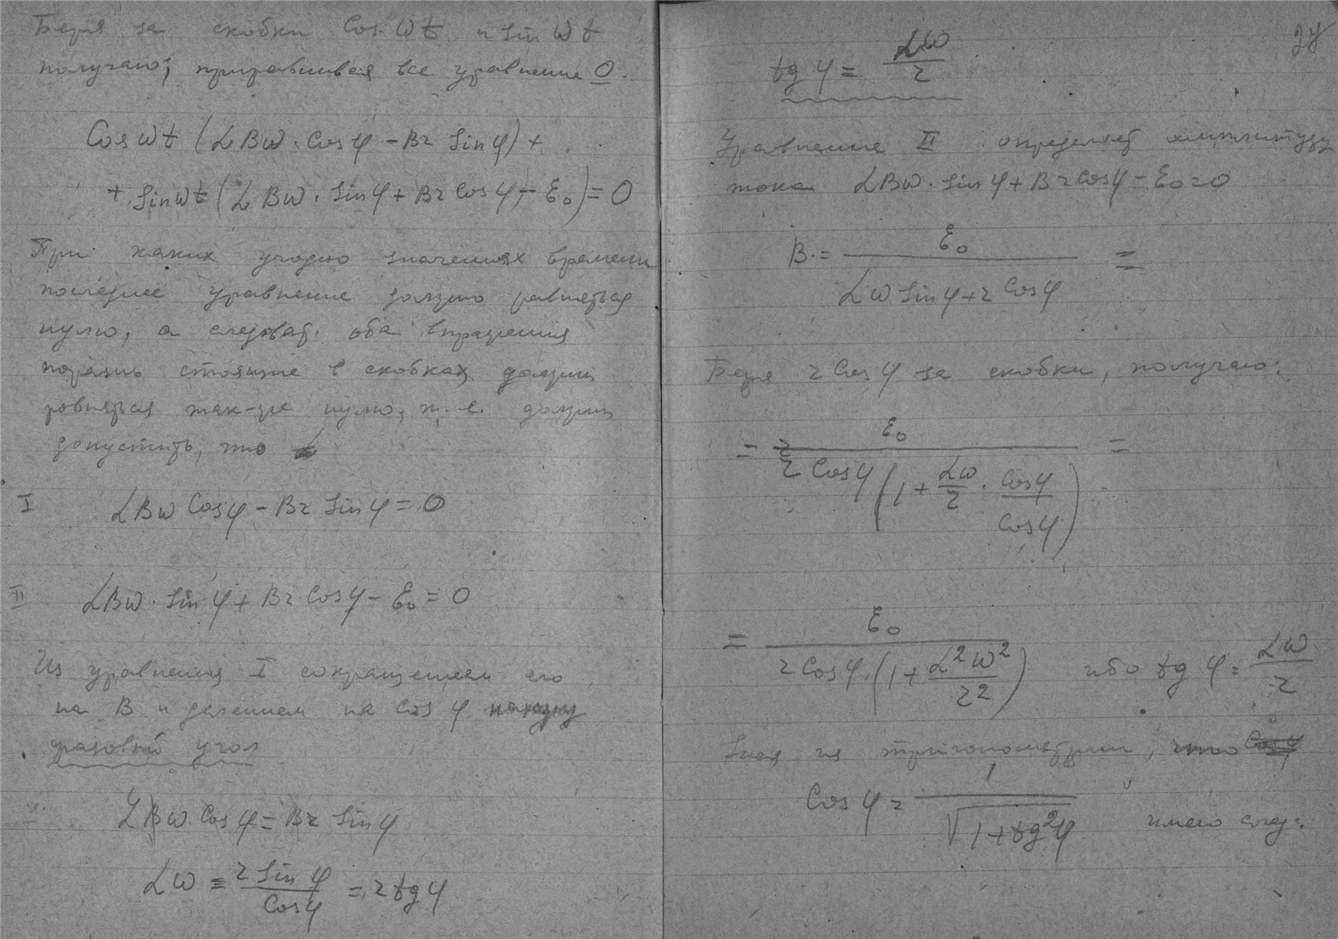 Беря за скобки Cos ωt и Sin ωt
получаю, приравнивая все уравнение 0.
Cos ωt (LBω · Cos φ − Br Sin φ) +
+ Sin ωt (LBω · Sin φ + Br Cos φ − Ɛ₀) = 0
При каких угодно значениях времени
последнее уравнение должно равняться
нулю, а следоват. оба выражения
порознь стоящие в скобках должны
равняться так-же нулю, т. е. должны
допустить, что
I LBω Cos φ − Br Sin φ = 0
II LBω · Sin φ + Br Cos φ − Ɛ₀ = 0
Из уравнения I сокращением его
на B и делением на Cos φ нахожу
фазовый угол
LBω · Cos φ = Br Sin φ
Lω = r Sin φ / Cos φ = r tg φ
tg φ = Lω / r
Уравнение II определяет амплитуду
тока LBω · Sin φ + Br Cos φ − Ɛ₀ = 0
B = Ɛ₀ / (Lω Sin φ + r Cos φ) =
Беря r Cos φ за скобки, получаю:
= Ɛ₀ / (r Cos φ (1 + Lω/r · Cos φ / Cos φ)) =
= Ɛ₀ / (r Cos φ · (1 + L²ω² / r²)) ибо tg φ = Lω / r
Зная из тригонометрии, что
Cos φ = 1 / √(1 + tg²φ) имею след: